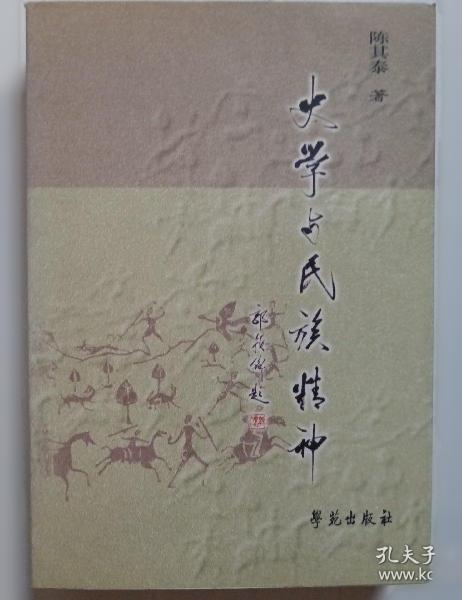 陈其泰 著
史学与民族精神
郭预衡题
學苑出版社
孔夫子
www.kc